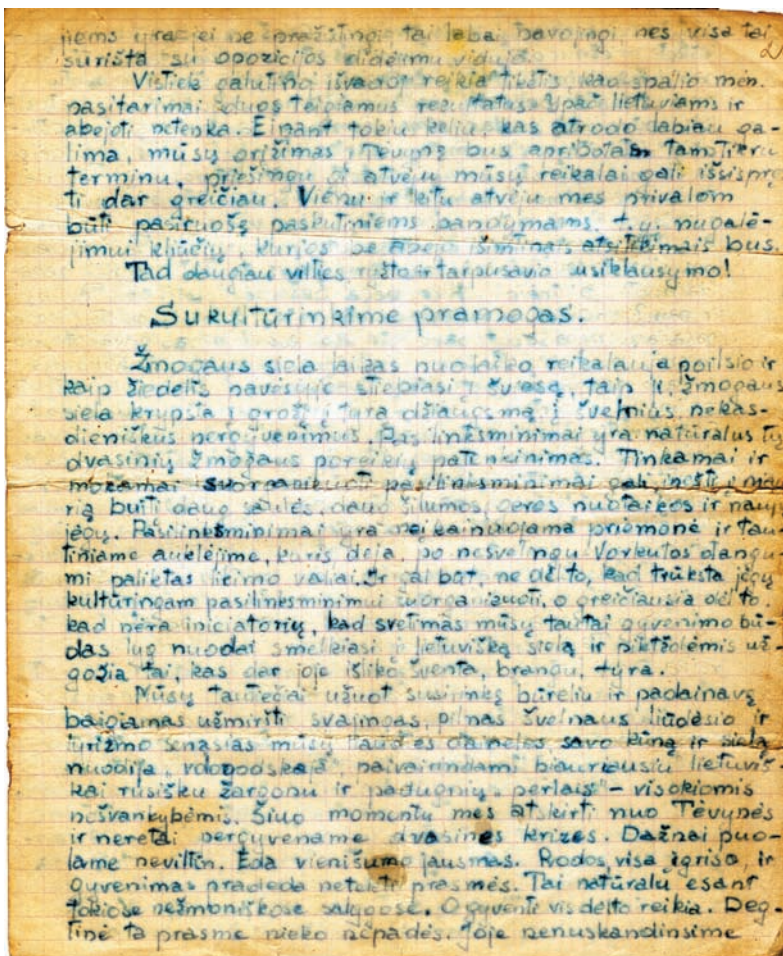 jiems yra jei ne pražūtingi tai labai pavojingi nes visa tai 2
surišta su opozicijos didėjimu viduje.
Vistiek galutinoj išvadoj reikia tikėtis, kad spalio mėn.
pasitarimai duos teigiamus rezultatus. Ypač lietuviams ir
abejoti netenka. Einant tokiu keliu, kas atrodo labiau ga-
lima, mūsų grįžimas į Tėvynę bus apribotas tam tikru
terminu, priešingu gi atveju mūsų reikalai gali išsispręs-
ti dar greičiau. Vienu ir kitu atveju mes privalom
būti pasiruošę paskutiniems bandymams, t.y. nugalė-
jimui kliūčių, kurios be abejo išimtinais atsitikimais bus.
Tad daugiau vilties ryžto ir tarpusavio susiklausymo!
Sukultūrinkime pramogas.
Žmogaus siela laikas nuo laiko reikalauja poilsio ir
kaip žiedelis pavėsyje stiebiasi į šviesą, taip ir žmogaus
siela krypsta į grožį į tyrą džiaugsmą į švelnius, nekas-
dieniškus pergyvenimus. Pasilinksminimai yra natūralus tų
dvasinių žmogaus poreikių patenkinimas. Tinkamai ir
mokamai suorganizuoti pasilinksminimai gali įnešti į niau
rią buitį daug saulės, daug šilumos, geros nuotaikos ir naujų
jėgų. Pasilinksminimai yra neįkainuojama priemonė ir tau-
tiniame auklėjime, kuris deja, po nesvetingu Vorkutos dangu
mi paliktas likimo valiai. Ir gal būt, ne dėl to, kad trūksta jėgų
kultūringam pasilinksminimui suorganizuoti, o greičiausia dėl to,
kad nėra iniciatorių, kad svetimas mūsų tautai gyvenimo bū-
das lyg nuodai smelkiasi į lietuvišką sielą ir piktžolėmis už-
gožia tai, kas dar joje išliko šventa, brangu, tyra.
Mūsų tautiečai užuot susirinkę būreliu ir padainavę
baigiamas užmiršti svajingas, pilnas švelnaus liūdesio ir
lyrizmo senąsias mūsų liaudies daineles savo kūną ir sielą
nuodija paivairindami biauriausiu lietuviš-
kai rusišku žargonu ir padugnių "perlais" - visokiomis
nešvankybėmis. Šiuo momentu mes atskirti nuo Tėvynės
ir neretai pergyvename dvasines krizes. Dažnai puo-
lame neviltin. Ėda vienišumo jausmas. Rodos, visa įgriso, ir
gyvenimas pradeda netekti prasmės. Tai natūralu esant
tokiose nežmoniškose sąlygose. O gyventi vis dėlto reikia. Deg-
tinė ta prasme nieko nepadės. Joje nenuskandinsime